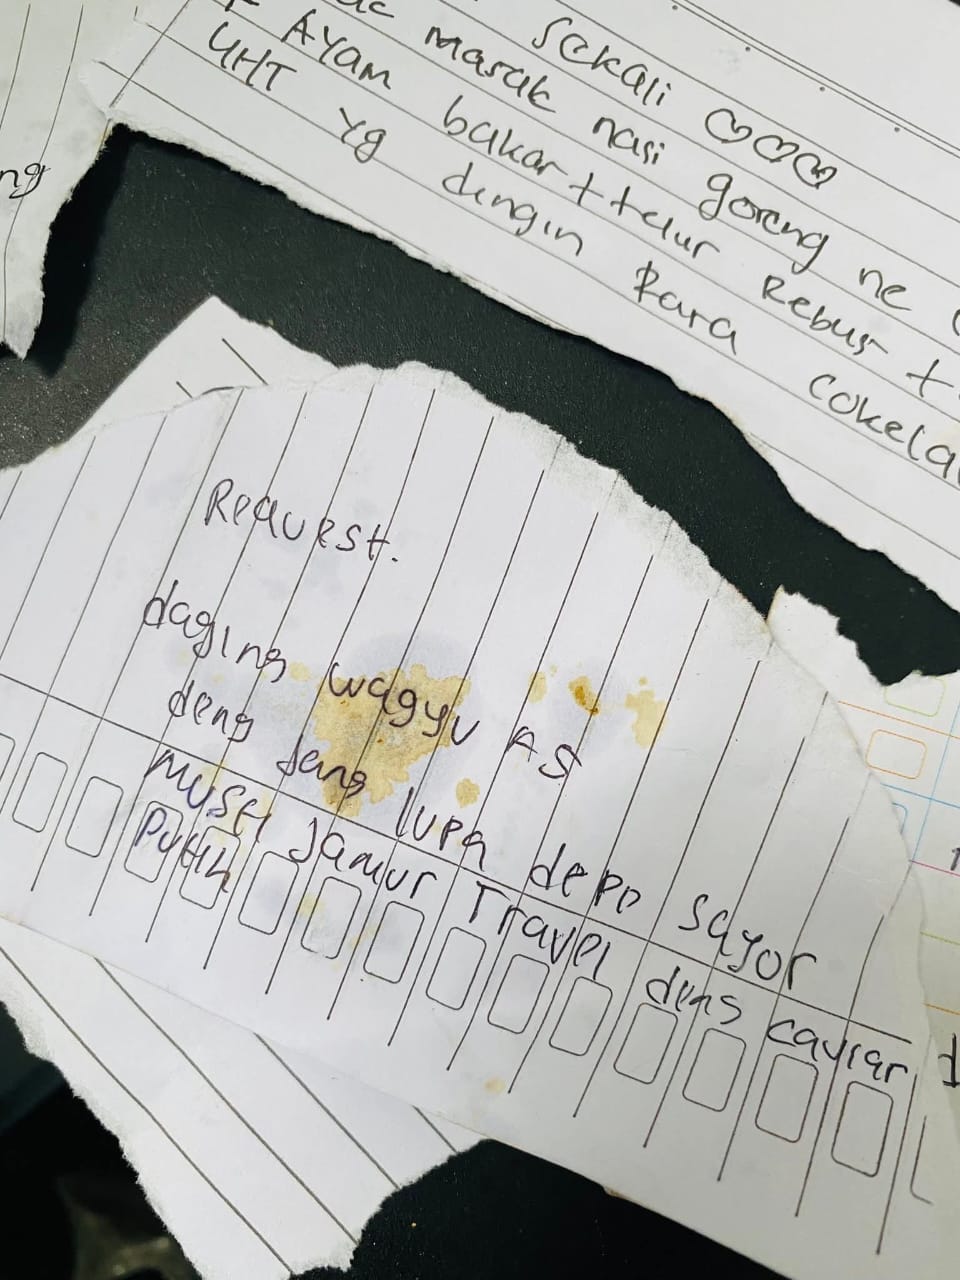 Sekali ♡♡♡
Masak nasi goreng ne
+ Ayam bakar + telur Rebus +
UHT yg dingin Rara cokela
ng
Request.
daging wagyu A5
deng jang lupa depo sayor
musti jamur Travel deng caviar
Putih